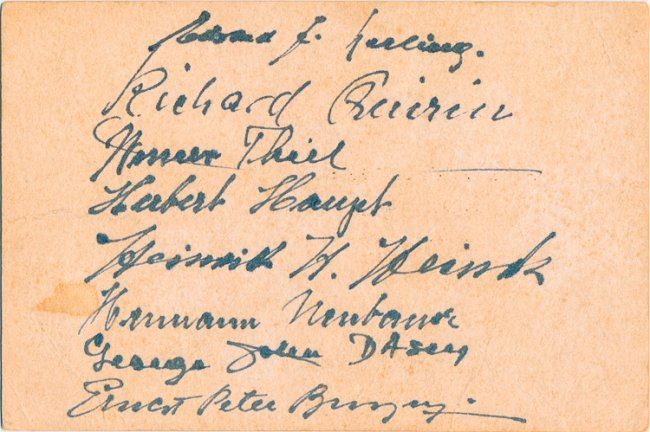 Edward J. Kerling.
Richard Quirin
Werner Thiel
Herbert Haupt
Heinrich H. Heinck
Hermann Neubauer
George John Dasch
Ernest Peter Burger